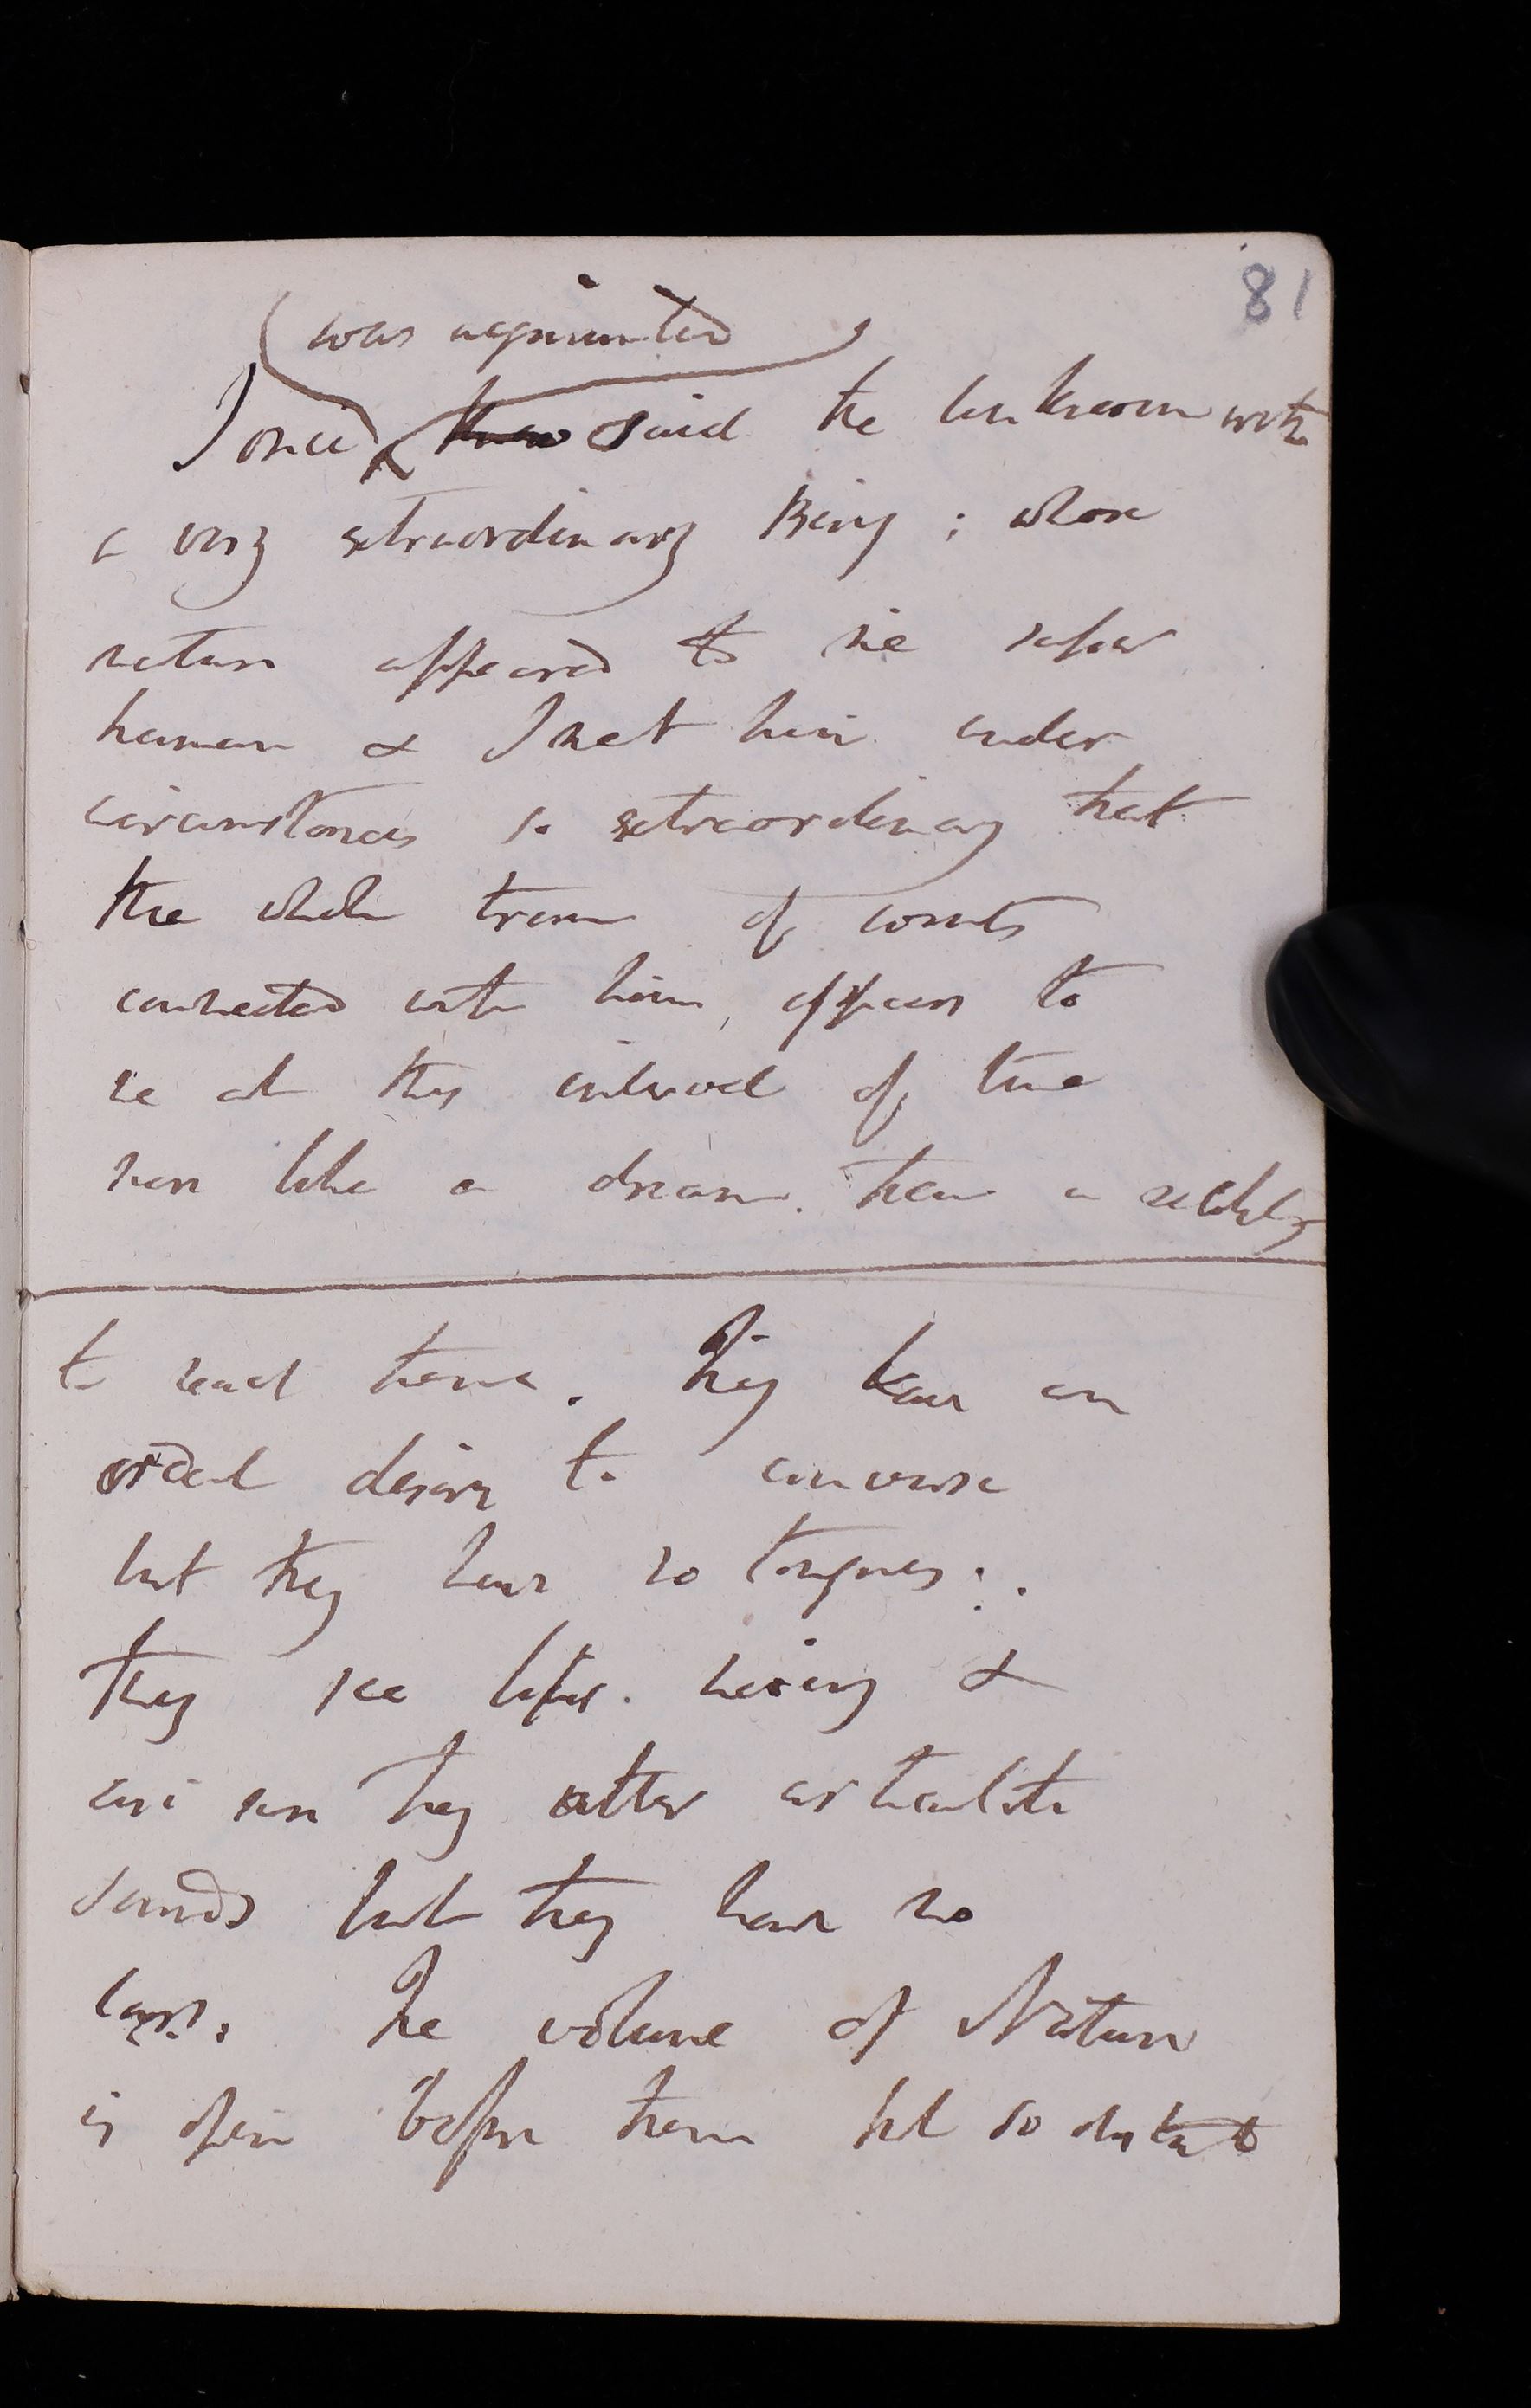 81
was acquainted
I once knew said the Unknown with
a very extraordinary Being ; whose
nature appeared to me super
human & I met him under
circumstances so extraordinary that
the whole train of events
connected with him, appear to
me at this interval of time
more like a dream. than a reality
to read them. They have an
ardent desire to converse
but they have no tongues :.
they see before. hearing &
they utter articulate
sounds but they have no
ears. The volume of Nature
is open before them but so